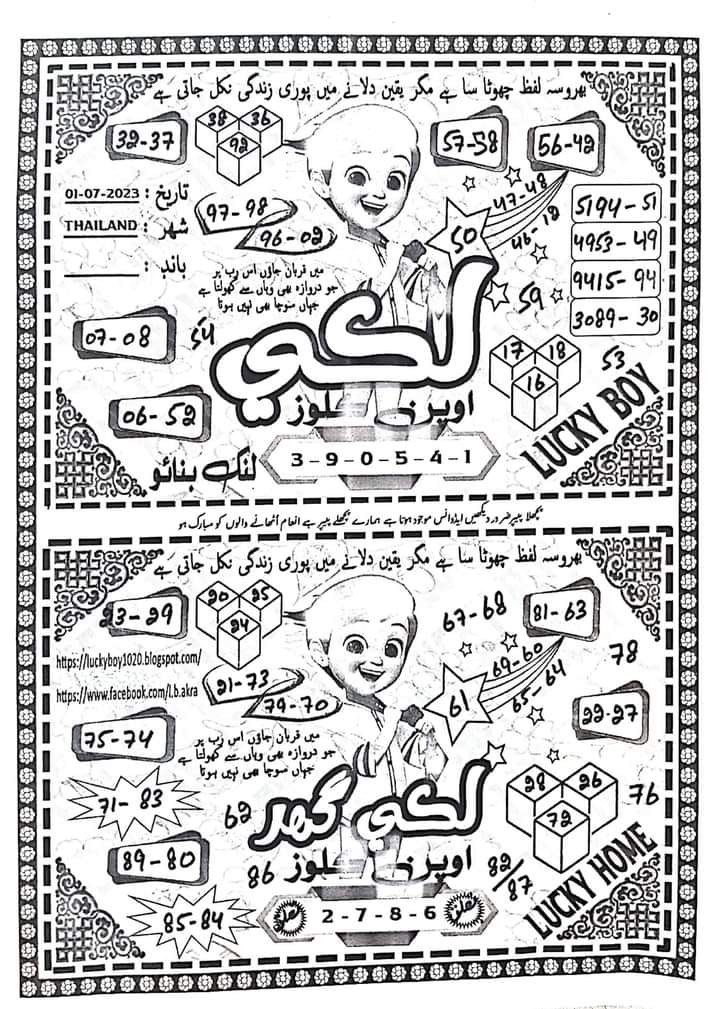 بھروسہ لفظ چھوٹا سا ہے مگر یقین دلانے میں پوری زندگی نکل جاتی ہے
32-37
38
36
92
57-58
56-42
تاریخ : 01-07-2023
شہر : THAILAND
باںڈ :
97-98
96-02
47-48
46-12
50
5194-51
4953-49
9415-94
3089-30
میں قربان جاؤں اس رب پر
جو دروازہ بھی وہاں سے کھولتا ہے
جہاں سوچا بھی نہیں ہوتا
59
07-08
54
لکی
17
18
16
53
06-52
اوپرنی کلوز
LUCKY BOY
لنک بنائو
3-9-0-5-4-1
پچھلا پیپر ضرور دیکھیں ایڈوانس موجود ہوتا ہے ہمارے پچھلے پیپر سے انعام اٹھانے والوں کو مبارک ہو
بھروسہ لفظ چھوٹا سا ہے مگر یقین دلانے میں پوری زندگی نکل جاتی ہے
23-29
20
25
24
67-68
81-63
https://luckyboy1020.blogspot.com/
https://www.facebook.com/l.b.akra
21-73
79-70
69-60
65-64
61
78
22-27
75-74
میں قربان جاؤں اس رب پر
جو دروازہ بھی وہاں سے کھولتا ہے
جہاں سوچا بھی نہیں ہوتا
71-83
62
لکی گھر
28
26
72
76
89-80
86
اوپرنی کلوز
82/87
LUCKY HOME
85-84
2-7-8-6